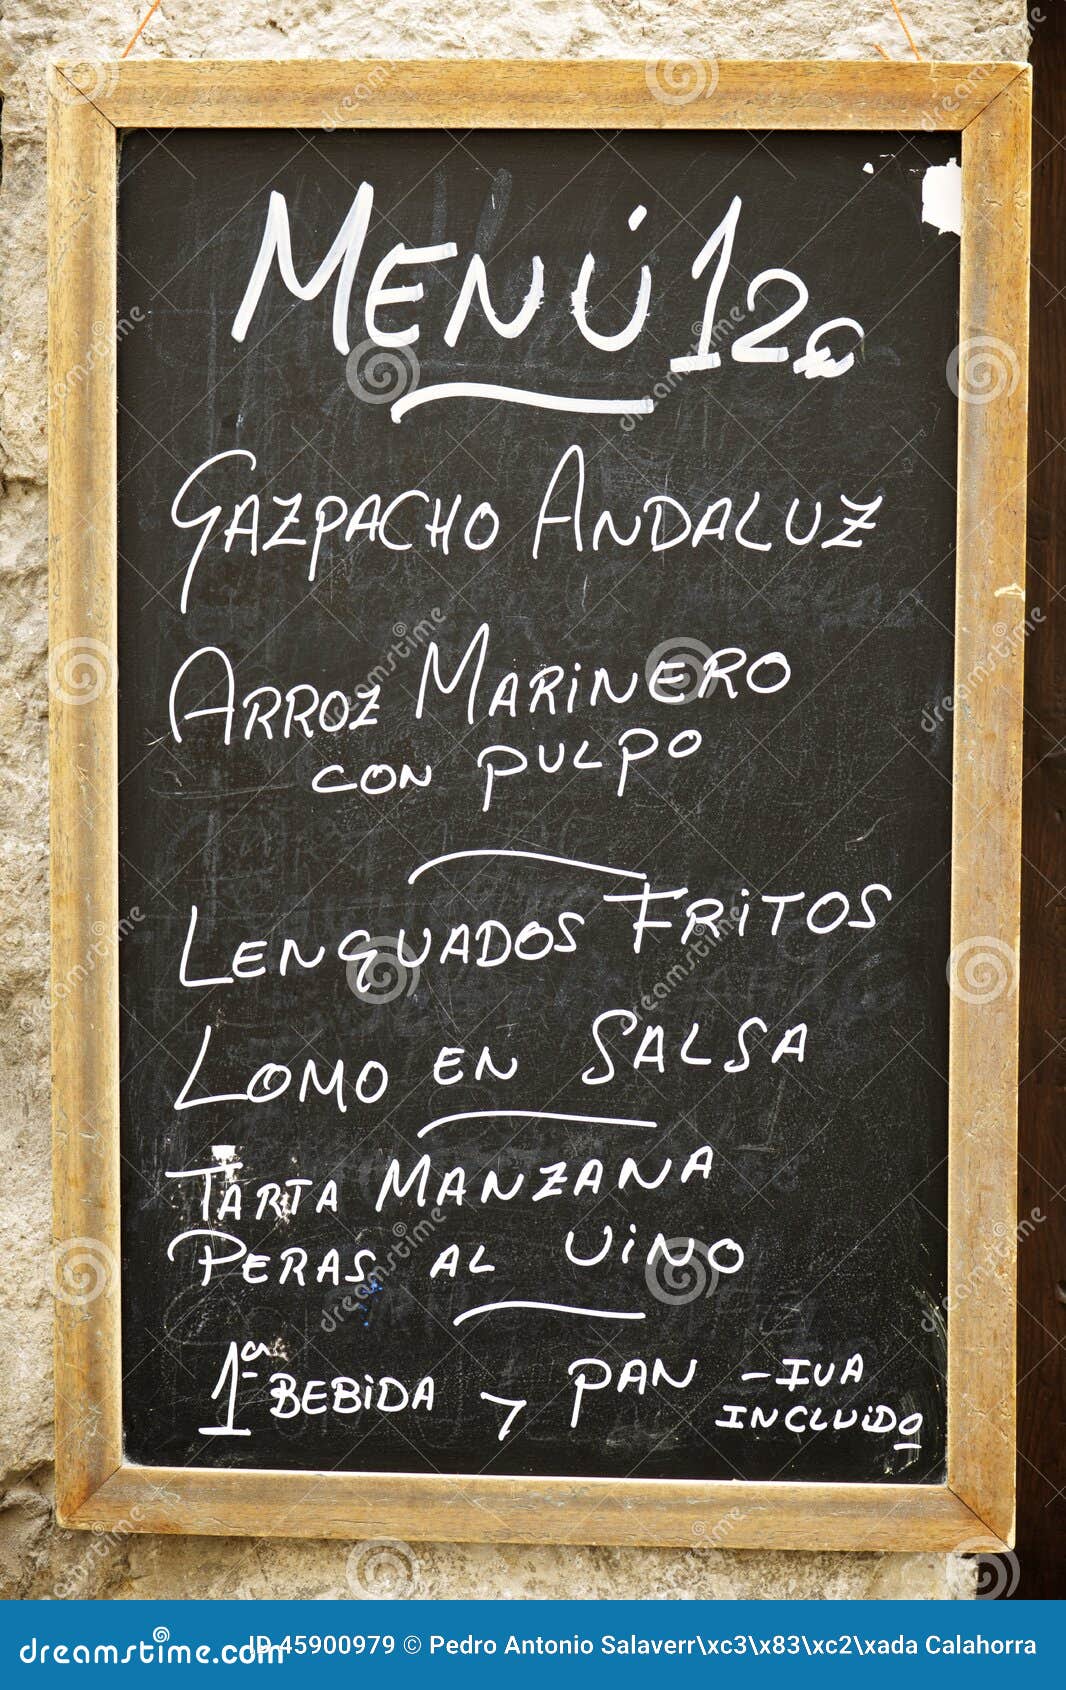 MENÚ 12€
GAZPACHO ANDALUZ
ARROZ MARINERO
CON PULPO
LENGUADOS FRITOS
LOMO EN SALSA
TARTA MANZANA
PERAS AL VINO
1ª BEBIDA y PAN - IVA
INCLUIDO
dreamstime.com ID 45900979 © Pedro Antonio Salaverr\xc3\x83\xc2\xada Calahorra